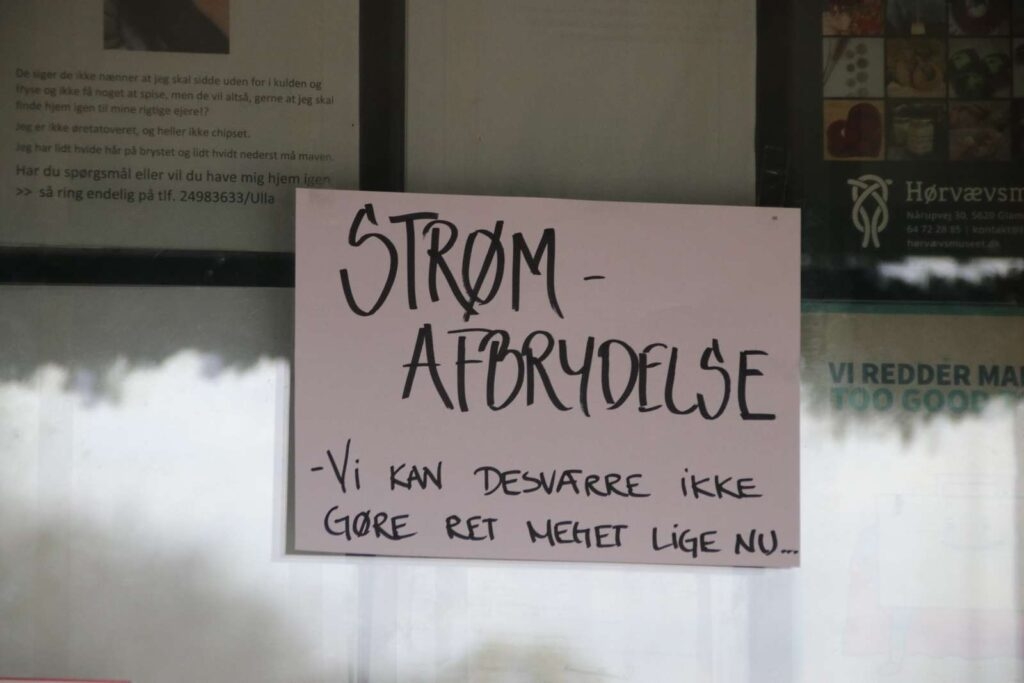 De siger de ikke nænner at jeg skal sidde uden for i kulden og
fryse og ikke få noget at spise, men de vil altså, gerne at jeg skal
finde hjem igen til mine rigtige ejere!?
Jeg er ikke øretatoveret, og heller ikke chipset.
Jeg har lidt hvide hår på brystet og lidt hvidt nederst må maven.
Har du spørgsmål eller vil du have mig hjem igen
>> så ring endelig på tlf. 24983633/Ulla
STRØM-
AFBRYDELSE
-Vi KAN DESVÆRRE iKKE
GØRE RET MEGET LiGE NU...
Hørvævsm
Nårupvej 30, 5620 Glam
64 72 28 85 | kontakt@
hørvævsmuseet.dk
VI REDDER MA
TOO GOOD